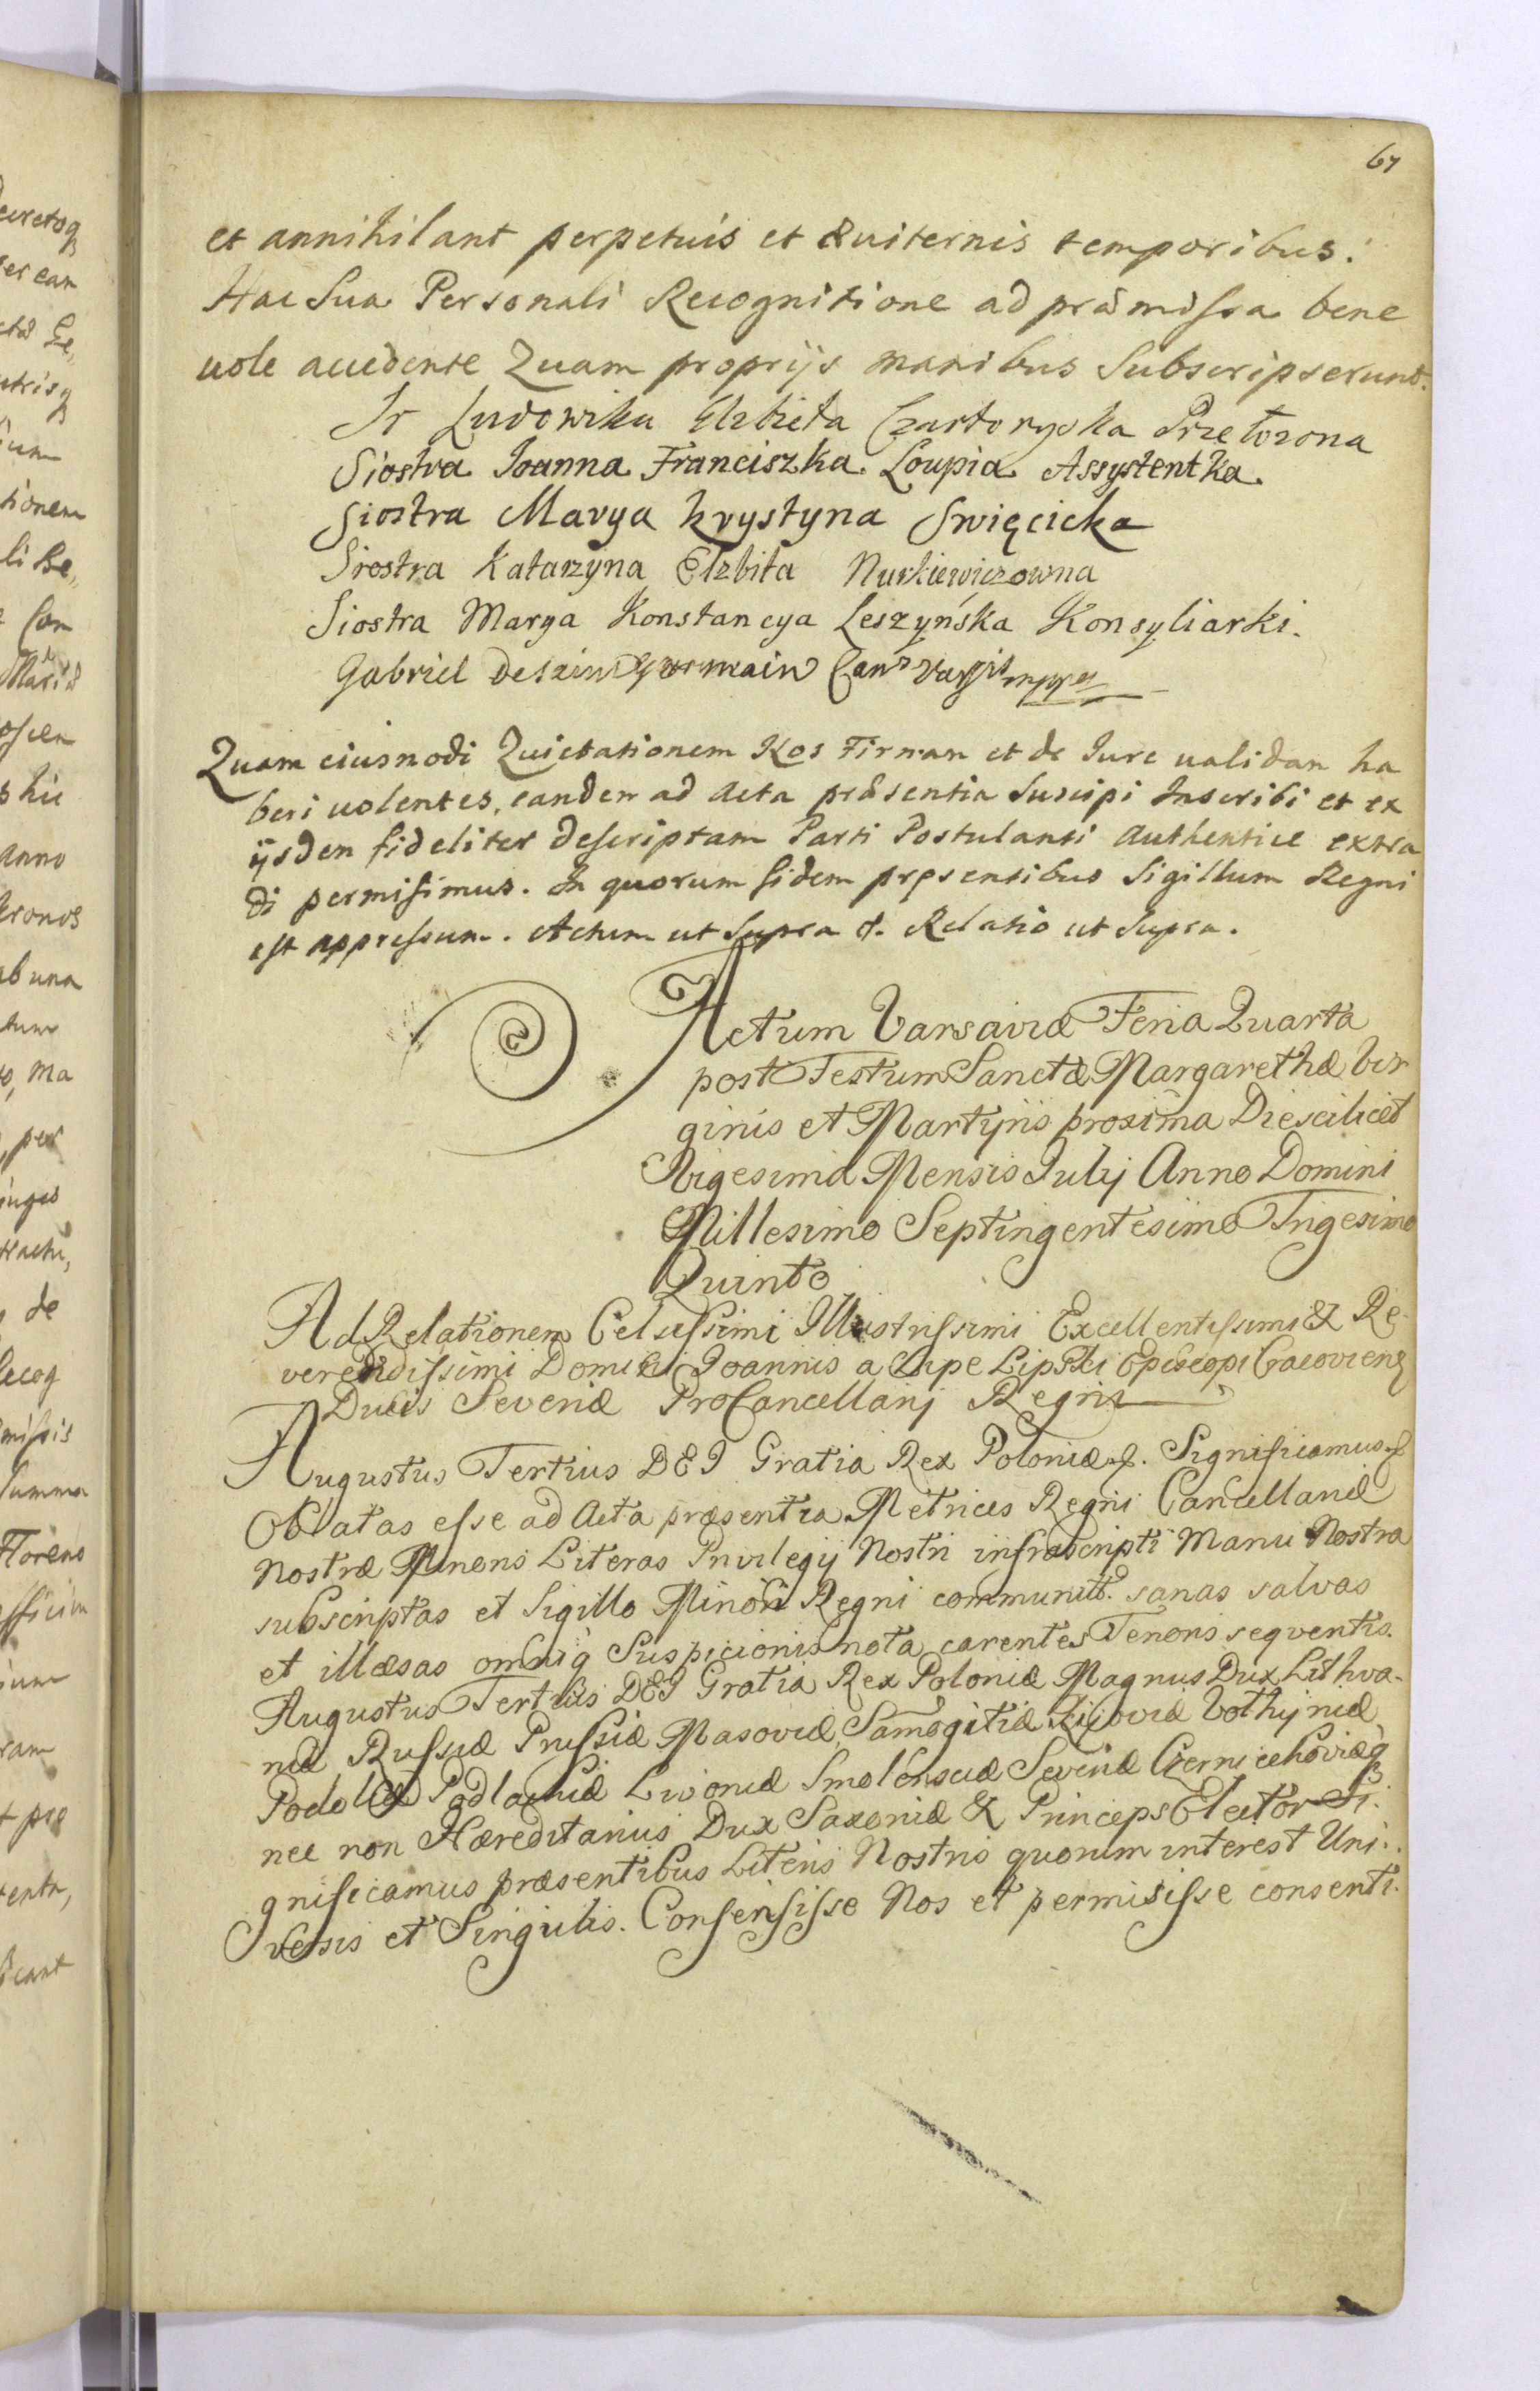 67
et annihilant perpetuis et æuiternis temporibus.
Hac Sua Personali Recognitione ad præmissa bene
uole accedente Quam proprijs manibus Subscripserunt.
Sr Ludowika Elzbieta Czartoryska Przełozona
Siostra Joanna Franciszka Loupia Assystentka.
Siostra Marya Krystyna Swięcicka
Siostra Katarzyna Elzbita Nurkiewiczowna
Siostra Marya Konstancya Leszzyńska Konsyliarki.
Gabriel Germain Can
Quam eiusmodi Quietationem Nos Firmam et de Jure ualidam ha
beri uolentes, eandem ad Acta præsentia Suscipi Inscribi et ex
ijsdem fideliter descriptam Parti Postulanti authentice extra
di permisimus. In quorum fidem pręsentibus Sigillum Regni
est appressum. Actum ut Supra &. Relatio ut Supra.
Actum Varsaviæ Feria Quarta
post Festum Sanctæ Margarethæ Vir
ginis et Martyris proxima Die scilicet
Vigesima Mensis Julij Anno Domini
Millesimo Septingentesimo Trigesimo
Quinto
Ad Relationem Celsissimi Illustrissimi Excellentissimi & Re
verendissimi Domini Joannis a Lupe Lipski Episcopi Cracovieng
Ducis Severiæ ProCancellarij Regni
Augustus Tertius DEI Gratia Rex Poloniæ &. Significamus &
Oblatas esse ad Acta præsentia Metrices Regni Cancellariæ
Nostræ Minoris Literas Privilegij Nostri infrascripti Manu Nostra
subscriptas et Sigillo Minori Regni communit. sanas salvas
et illæsas omniq Suspicionis nota carentes Tenoris seqventis.
Augustus Tertius DEI Gratia Rex Poloniæ Magnus Dux Lithva-
niæ Russiæ Prussiæ Masoviæ, Samogitiæ Kijoviæ Volhyniæ
Podoliæ Podlachiæ Livoniæ Smolensciæ Severiæ Czerniechoviæq
nec non Hæreditarius Dux Saxoniæ & Princeps Elector Si.
gnificamus præsentibus Literis Nostris quorum interest Uni.
versis et Singulis. Consensisse Nos et permisisse consenti.